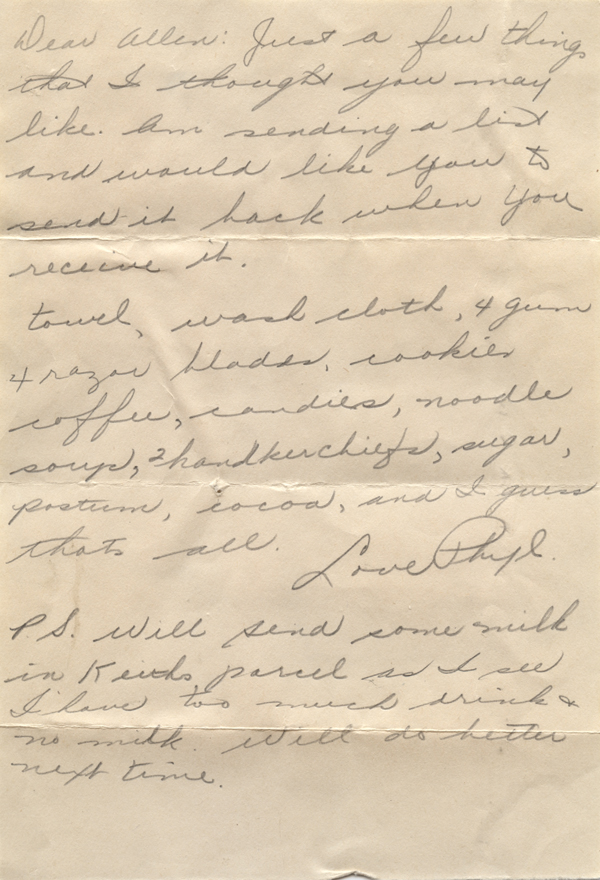 Dear Allen: Just a few things
that I thought you may
like. Am sending a list
and would like you to
send it back when you
receive it.
towel, wash cloth, 4 gum
4 razor blades, cookies
coffee, candies, noodle
soup, 2 handkerchiefs, sugar,
postum, cocoa, and I guess
thats all.
Love Phyl.
P.S. Will send some milk
in Keiths parcel as I see
I have too much drink &
no milk. Will do better
next time.